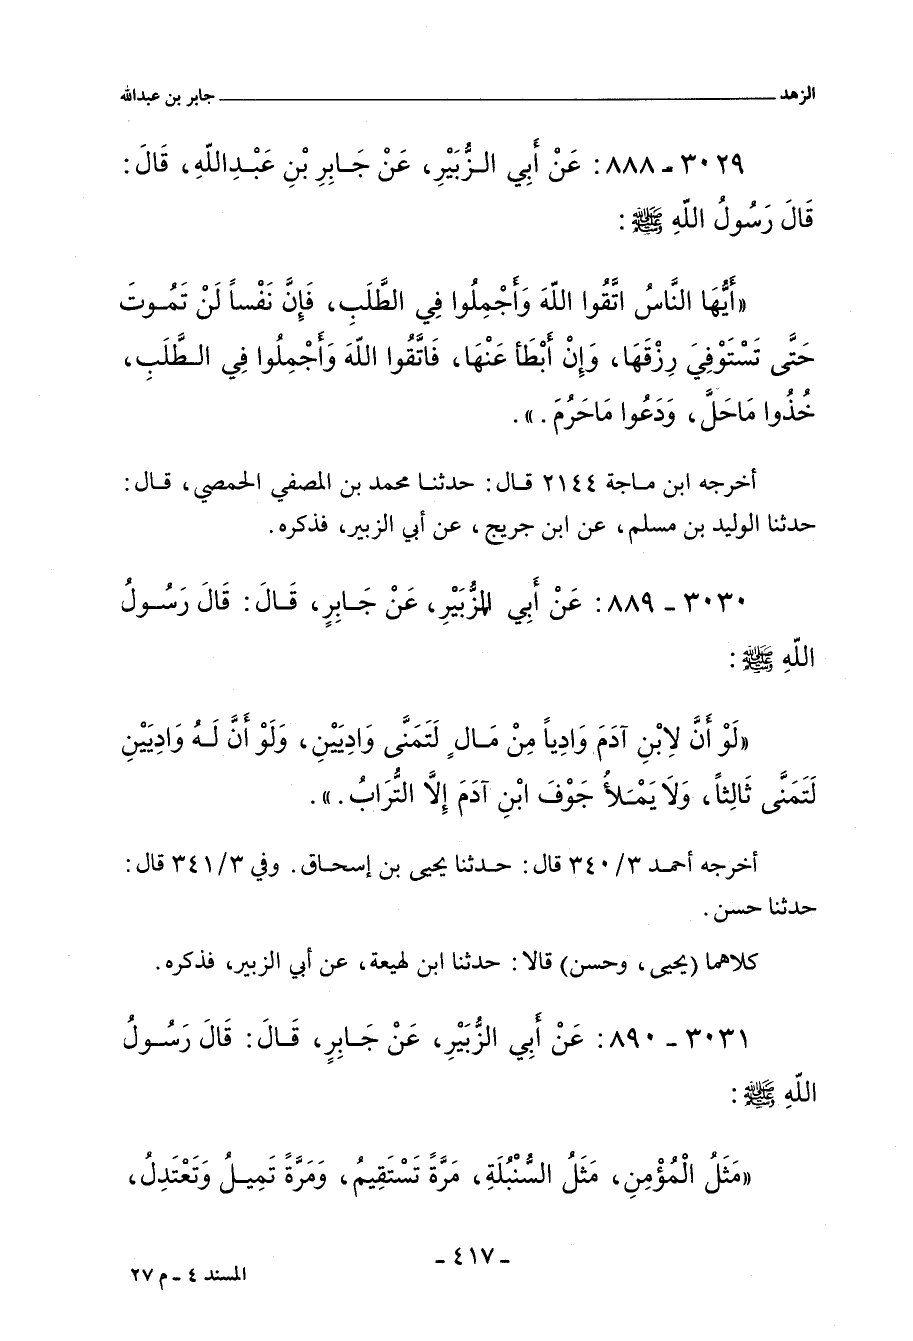 الزهد ــــــــــــــــــــ جابر بن عبدالله
٣٠٢٩ - ٨٨٨ : عَنْ أَبِي الـزُّبَيْرِ، عَنْ جَـابِرِ بْنِ عَبْـدِاللّهِ، قَالَ :
قَالَ رَسُولُ اللّهِ ﷺ :
«أَيُّهَا النَّاسُ اتَّقُوا اللّهَ وَأَجْمِلُوا فِي الطَّلَبِ، فَإِنَّ نَفْساً لَنْ تَمُوتَ
حَتَّى تَسْتَوْفِيَ رِزْقَهَا، وَإِنْ أَبْطَأَ عَنْهَا، فَاتَّقُوا اللّهَ وَأَجْمِلُوا فِي الـطَّلَبِ،
خُذُوا مَاحَلَّ، وَدَعُوا مَاحَرُمَ .» .
أخرجه ابن مـاجة ٢١٤٤ قـال : حدثنـا محمد بن المصفي الحمصي، قـال :
حدثنا الوليد بن مسلم، عن ابن جريج، عن أبي الزبير، فذكره.
٣٠٣٠ - ٨٨٩ : عَنْ أَبِي الزُّبَيْرِ، عَنْ جَـابِرٍ، قَـالَ : قَالَ رَسُـولُ
اللّهِ ﷺ :
«لَوْ أَنَّ لِابْنِ آدَمَ وَادِياً مِنْ مَـالٍ لَتَمَنَّى وَادِيَيْنِ، وَلَوْ أَنَّ لَـهُ وَادِيَيْنِ
لَتَمَنَّى ثَالِثاً، وَلَا يَمْـلَأُ جَوْفَ ابْنِ آدَمَ إِلَّا التُّرَابُ .» .
أخرجه أحمـد ٣٤٠/٣ قال : حـدثنا يحيى بن إسحـاق. وفي ٣٤١/٣ قال :
حدثنا حسن.
كلاهما (يحيى، وحسن) قالا : حدثنا ابن لهيعة، عن أبي الزبير، فذكره.
٣٠٣١ - ٨٩٠ : عَنْ أَبِي الزُّبَيْرِ، عَنْ جَـابِرٍ، قَـالَ : قَالَ رَسُـولُ
اللّهِ ﷺ :
«مَثَلُ الْمُؤْمِنِ، مَثَلُ السُّنْبُلَةِ، مَرَّةً تَسْتَقِيمُ، وَمَرَّةً تَمِيـلُ وَتَعْتَدِلُ،
- ٤١٧ -
المسند ٤ - م ٢٧